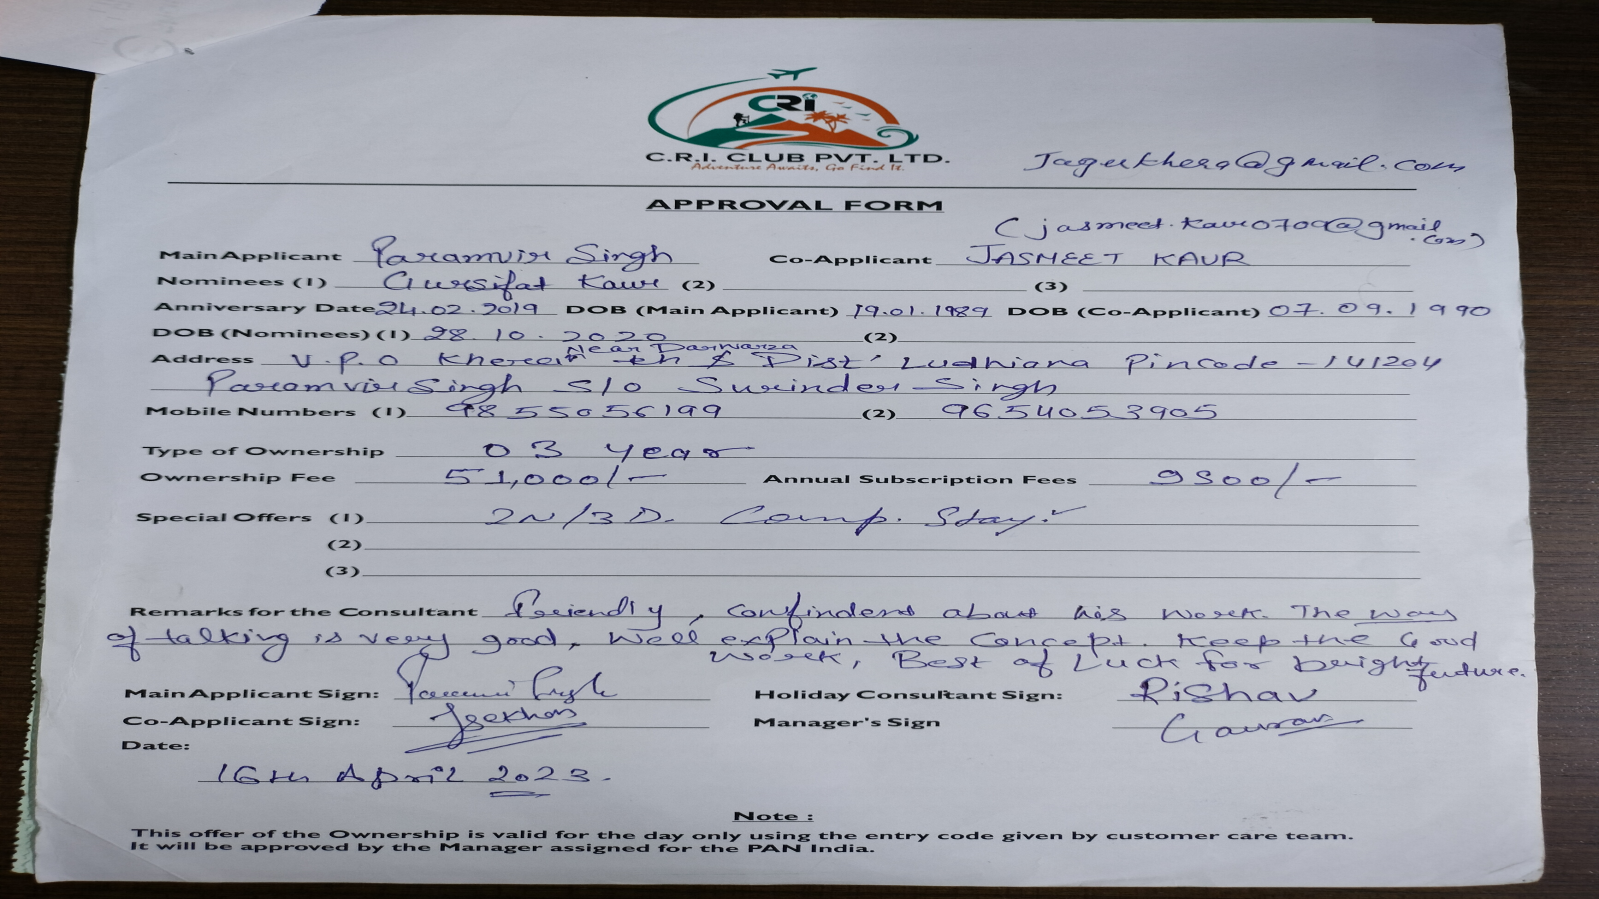 CRi
C.R.I. CLUB PVT. LTD.
Adventure Awaits, Go Find It.
Jagukhera@gmail.com
APPROVAL FORM
(jasmeet.kaur0709@gmail.com)
Main Applicant Paramvir Singh Co-Applicant JASMEET KAUR
Nominees (1) Gursifat Kaur (2) (3)
Anniversary Date 24.02.2019 DOB (Main Applicant) 19.01.1989 DOB (Co-Applicant) 07.09.1990
DOB (Nominees) (1) 28.10.2020 (2)
Near Darwaza
Address V.P.O Kheree Teh & Dist' Ludhiana Pincode - 141204
Paramvir Singh S/o Surinder Singh
Mobile Numbers (1) 9855056199 (2) 9654053905
Type of Ownership 03 year
Ownership Fee 51,000/- Annual Subscription Fees 9300/-
Special Offers (1) 2N/3D. Comp. Stay.
(2)
(3)
Remarks for the Consultant Friendly, confindent about his work. The way
of talking is very good, Well explain the concept. Keep the Good
work, Best of Luck for bright future.
Main Applicant Sign: Holiday Consultant Sign: Rishav
Co-Applicant Sign: Jsekhon Manager's Sign Gaurav
Date:
16th April 2023.
Note :
This offer of the Ownership is valid for the day only using the entry code given by customer care team.
It will be approved by the Manager assigned for the PAN India.